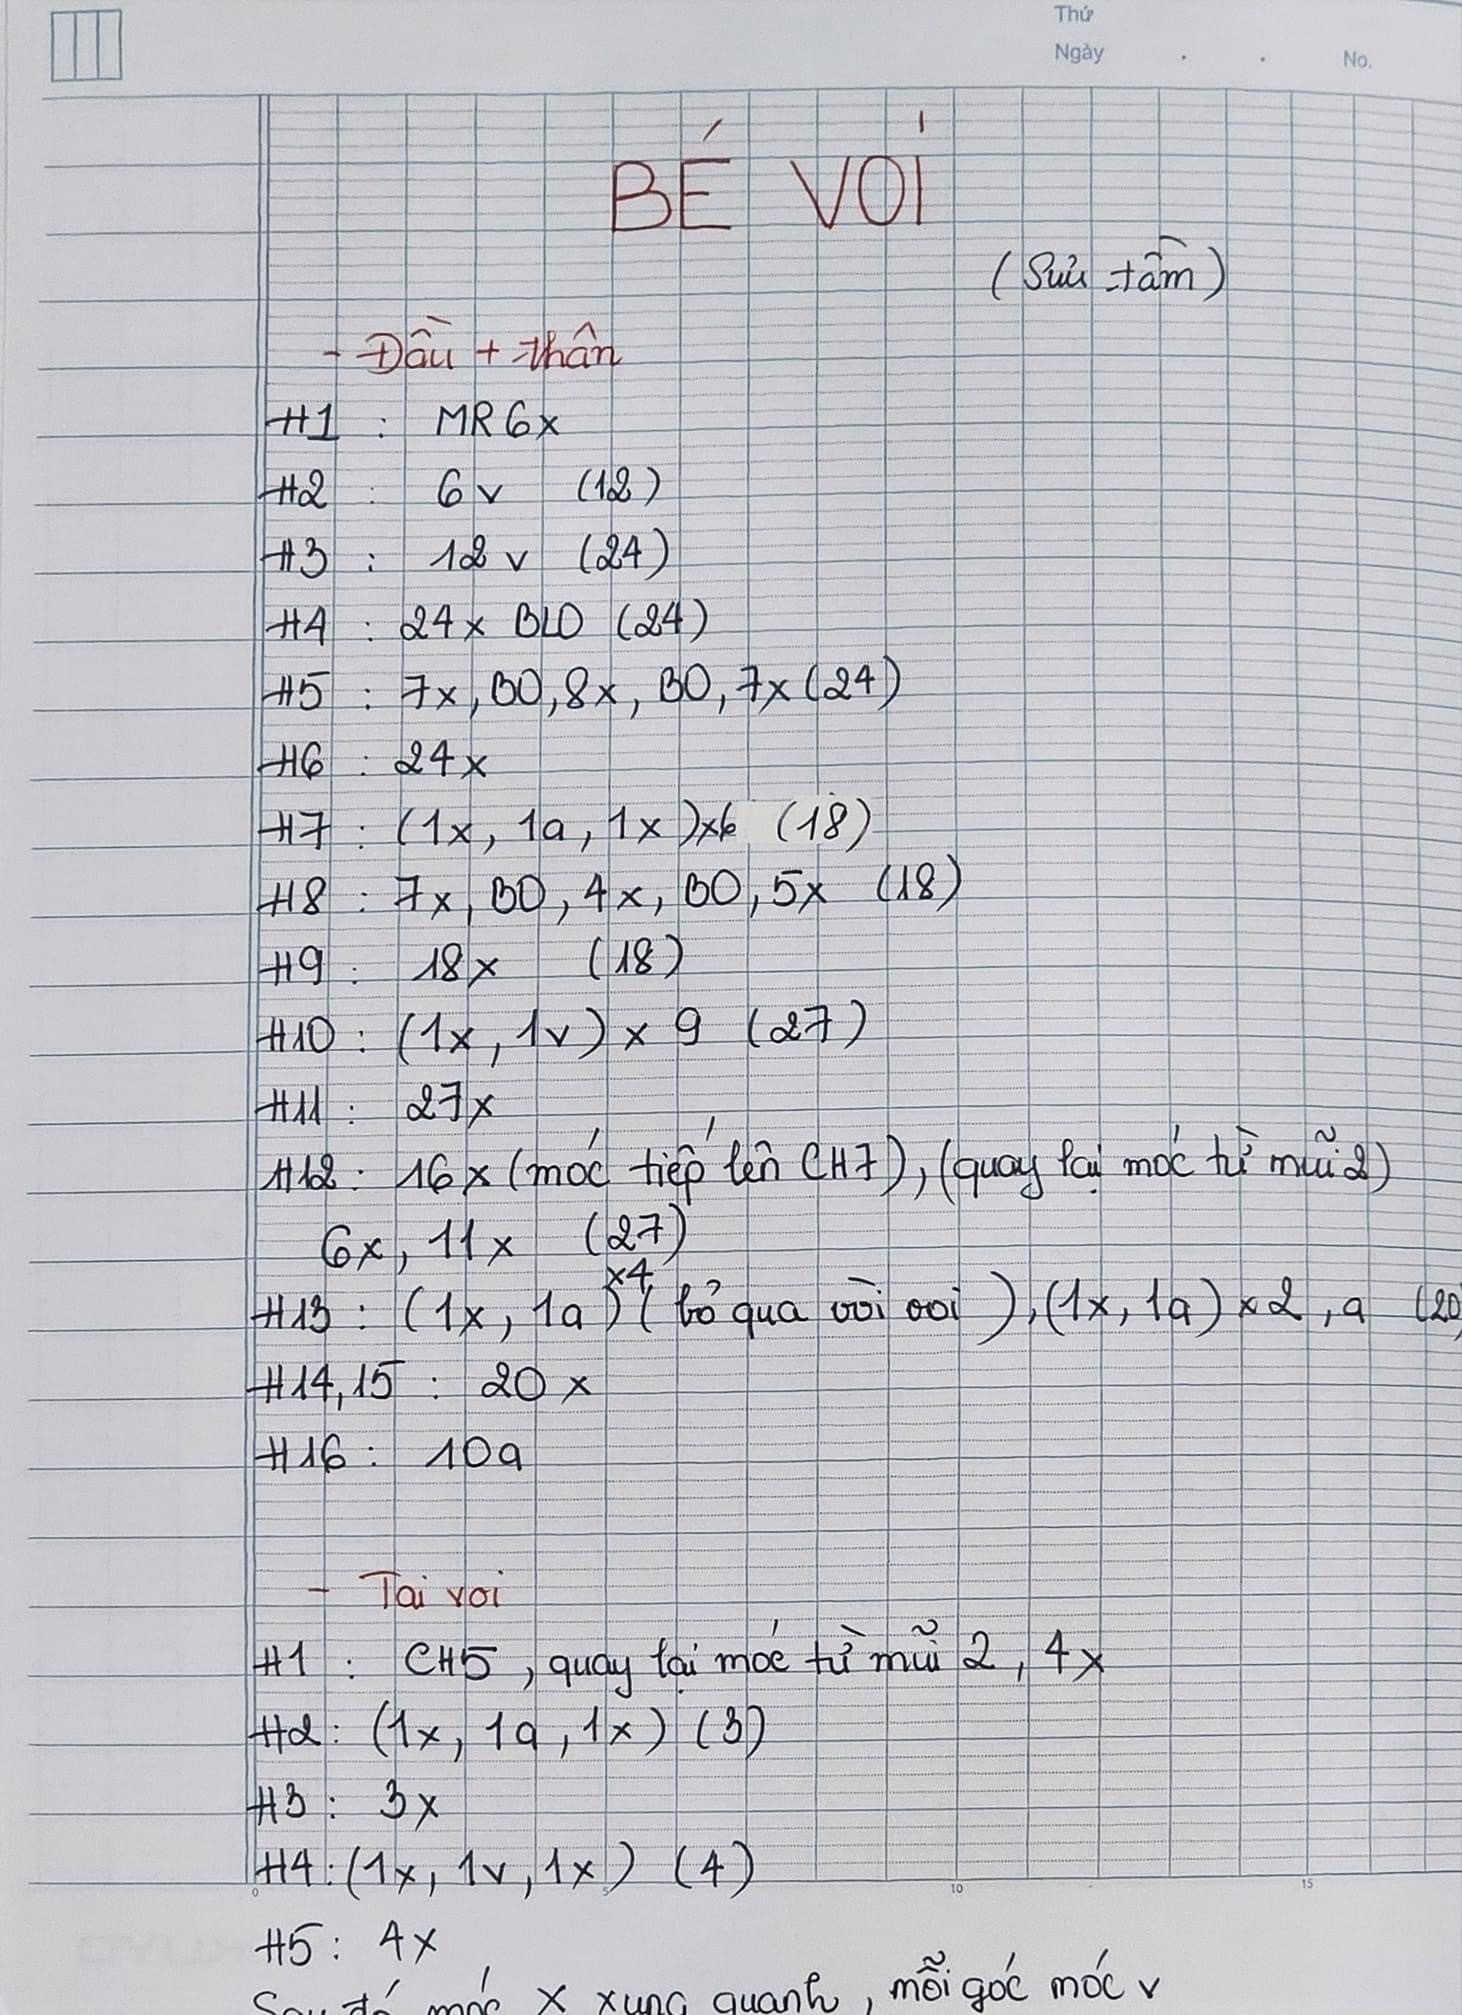 Thứ
Ngày . . No.
BÉ VOI
(Sưu tầm)
- Đầu + thân
H1 : MR 6x
H2 : 6v (12)
H3 : 12v (24)
H4 : 24x BLO (24)
H5 : 7x, BO, 8x, BO, 7x (24)
H6 : 24x
H7 : (1x, 1a, 1x)x6 (18)
H8 : 7x, BO, 4x, BO, 5x (18)
H9 : 18x (18)
H10 : (1x, 1v) x 9 (27)
H11 : 27x
H12 : 16x (móc tiếp lên CH7), (quay lại móc từ mũi 2)
6x, 11x (27)
H13 : (1x, 1a)x4 (bỏ qua vòi voi), (1x, 1a) x 2, a (20)
H14,15 : 20x
H16 : 10a
- Tai voi
H1 : CH5, quay lại móc từ mũi 2, 4x
H2 : (1x, 1a, 1x) (3)
H3 : 3x
H4 : (1x, 1v, 1x) (4)
0 5 10 15
H5 : 4x
Sau đó móc x xung quanh, mỗi góc móc v